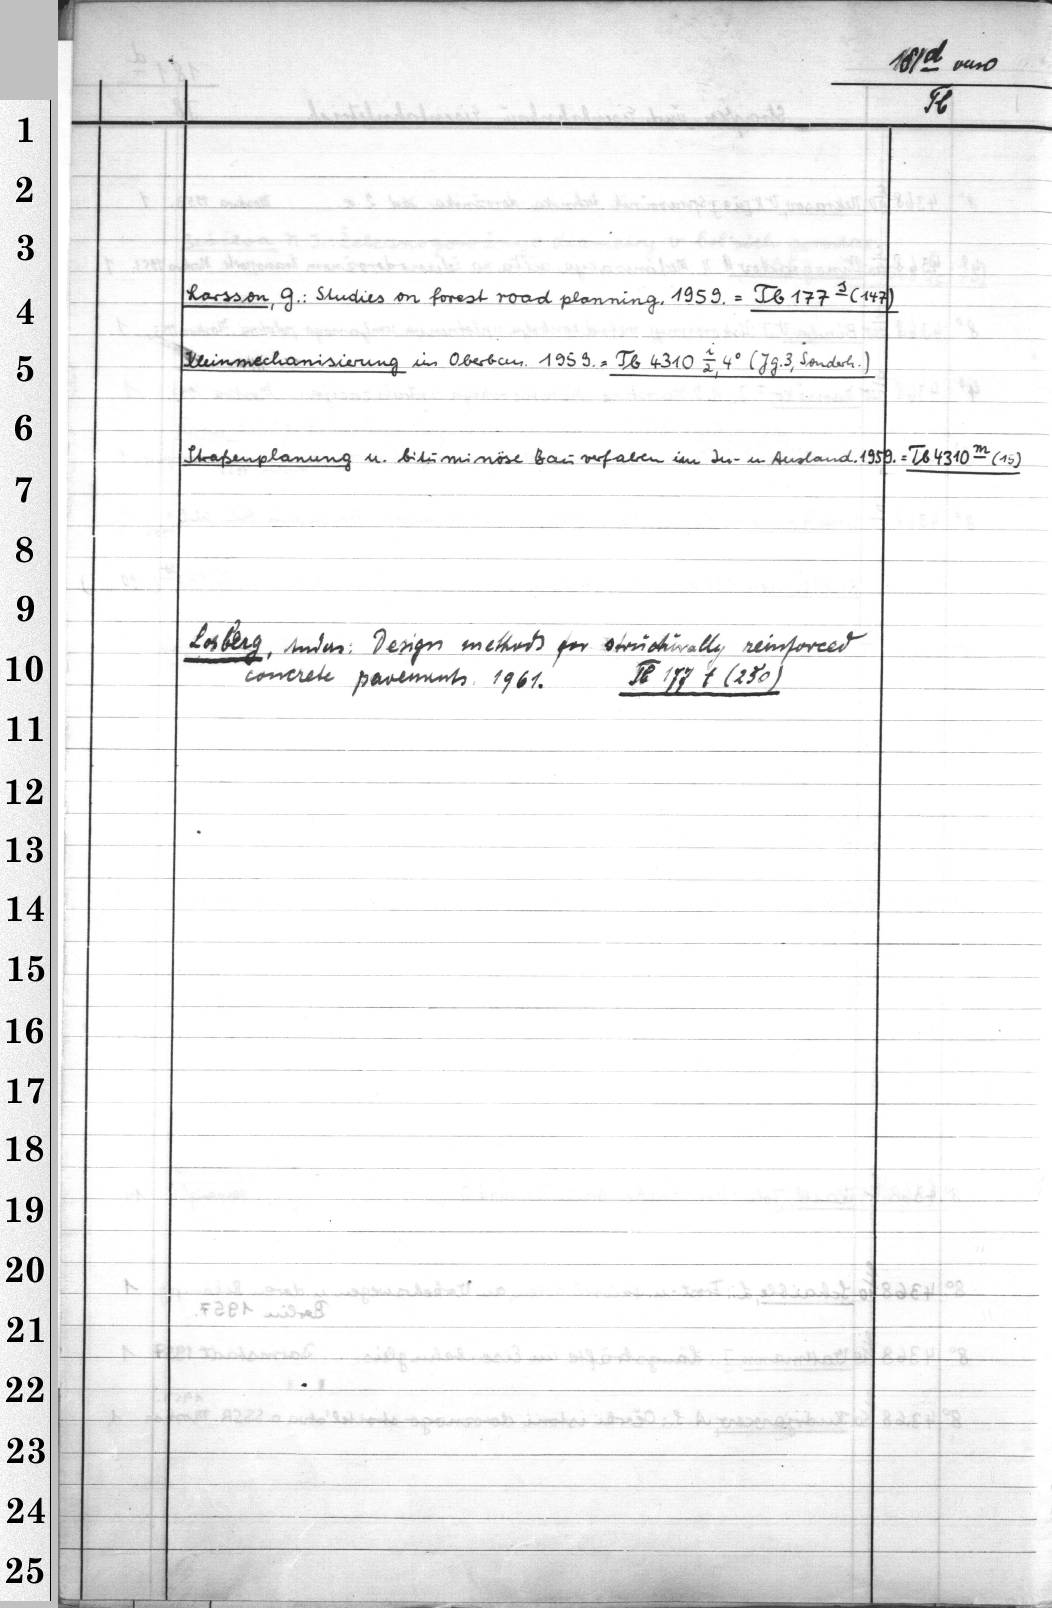 181d verso
Tb
1
2
3
4
Larsson, G.: Studies on forest road planning. 1959. = Tb 177 s (147)
5
Kleinmechanisierung im Oberbau. 1959. = Tb 4310 i/2, 4° (Jg. 3, Sonderh.)
6
Straßenplanung u. bituminöse Bauverfahren im In- u Ausland. 1959. = Tb 4310 m (15)
7
8
9
Losberg, Anders: Design methods for structurally reinforced
10
concrete pavements. 1961. Tb 177 t (250)
11
12
13
14
15
16
17
18
19
20
21
22
23
24
25